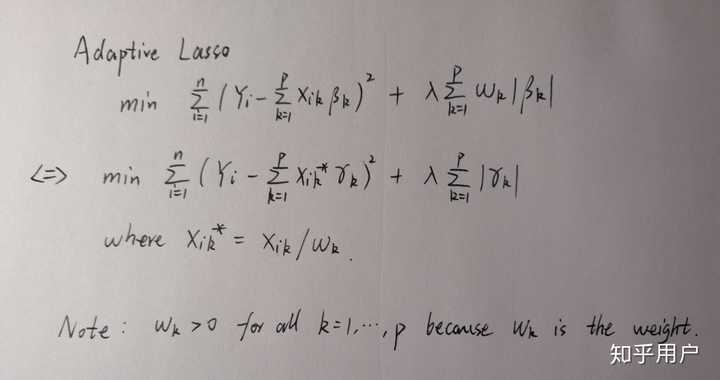 Adaptive Lasso
min \sum_{i=1}^{n} (Y_i - \sum_{k=1}^{p} X_{ik} β_k)^2 + λ \sum_{k=1}^{p} w_k |β_k|
<=> min \sum_{i=1}^{n} (Y_i - \sum_{k=1}^{p} X_{ik}^* γ_k)^2 + λ \sum_{k=1}^{p} |γ_k|
where X_{ik}^* = X_{ik} / w_k.
Note: w_k > 0 for all k=1,⋯,p because w_k is the weight.
知乎用户